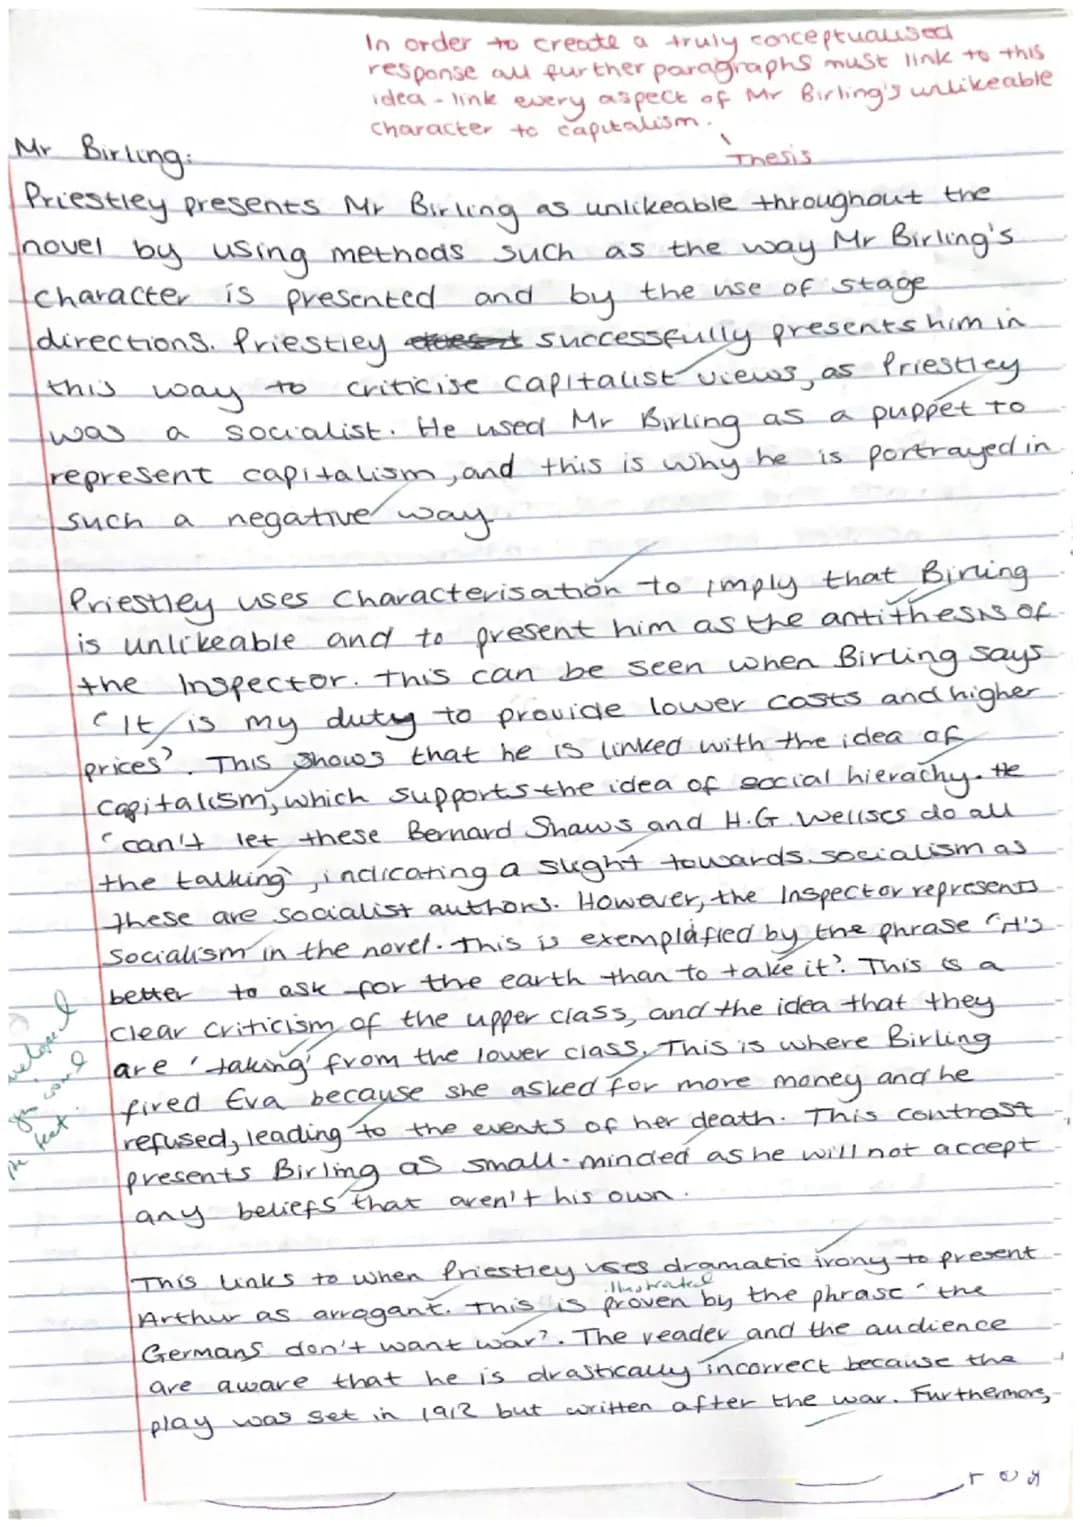 In order to create a truly conceptualised
response all further paragraphs must link to this
idea - link every aspect of Mr Birling's unlikeable
character to capitalism.
Thesis
Mr Birling:
Priestley presents Mr Birling as unlikeable throughout the
novel by using methods such as the way Mr Birling's
character is presented and by the use of stage
directions. Priestley successfully presents him in
this way to criticise capitalist views, as Priestley
was a socialist. He used Mr Birling as a puppet to
represent capitalism, and this is why he is portrayed in
such a negative way
Priestley uses characterisation to imply that Birling
is unlikeable and to present him as the antithesis of
the Inspector. This can be seen when Birling says
'It is my duty to provide lower costs and higher
prices'. This shows that he is linked with the idea of
capitalism, which supports the idea of social hierachy. He
'can't let these Bernard Shaws and H.G. Wellses do all
the talking', indicating a slight towards socialism as
these are socialist authors. However, the Inspector represents
Socialism in the novel. This is exemplafied by the phrase "it's
better to ask for the earth than to take it'. This is a
clear criticism of the upper class, and the idea that they
are 'taking' from the lower class. This is where Birling
fired Eva because she asked for more money and he
refused, leading to the events of her death. This contrast
presents Birling as small-minded as he will not accept
any beliefs that aren't his own.
This links to when Priestley uses dramatic irony to present
illustrated
Arthur as arrogant. This is proven by the phrase "the
Germans don't want war'. The reader and the audience
are aware that he is drastically incorrect because the
play was set in 1912 but written after the war. Furthermore,